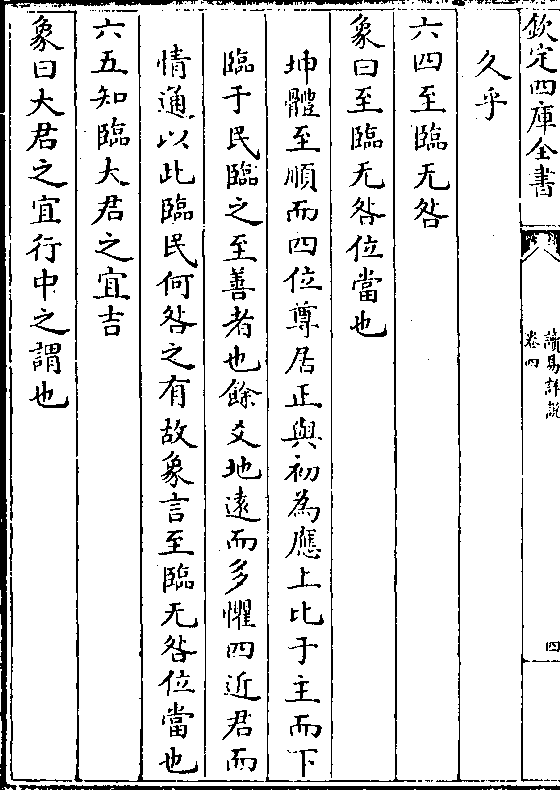 欽定四庫全書
讀易詳說
卷四
四
久乎
六四至臨无咎
象曰至臨无咎位當也
坤體至順而四位尊居正與初為應上比于主而下
臨于民臨之至善者也餘爻地遠而多懼四近君而
情通以此臨民何咎之有故象言至臨无咎位當也
六五知臨大君之宜吉
象曰大君之宜行中之謂也